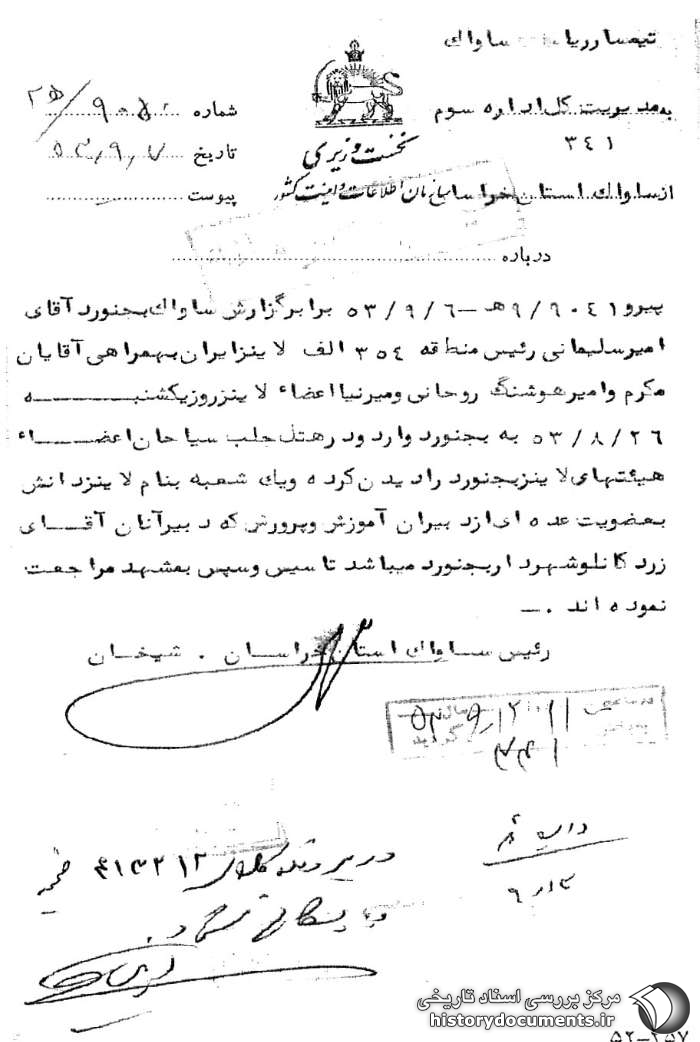 تیمسار ریاست ساواك
به مدیریت کل اداره سوم
۳۴۱
نخست وزیری
سازمان اطلاعات و امنیت کشور
از ساواك استان خراسان
شماره ۹۰۵۰/
تاریخ ۵۳٫۹٫۷
پیوست
درباره
پیرو ۹/۹۰۴۱هـ-۵۳/۹/۶ برابر گزارش ساواك بجنورد آقای
امیر سلیمانی رئیس منطقه ۳۵۴ الف لاینز ایران بهمراهی آقایان
مکرم و امیرهوشنگ روحانی و میرنیا اعضاء لاینز روز یکشنبه
۵۳/۸/۲۶ به بجنورد وارد و در هتل جلب سیاحان اعضاء
هیئتهای لاینز بجنورد را دیدن کرده ویك شعبه بنام لاینز دانش
بعضویت عده ای از دبیران آموزش و پرورش که دبیر آنان آقای
زرد کانلو شهردار بجنورد میباشد تاسیس وسپس بمشهد مراجعت
نموده اند .-
رئیس ساواك استان خراسان . شیخان
۳۴۱
در پرونده کلاسه ۴۱۳۲۱۲
بایگانی شود.
مرکز بررسی اسناد تاریخی
historydocuments.ir
۵۲-۲۵۷